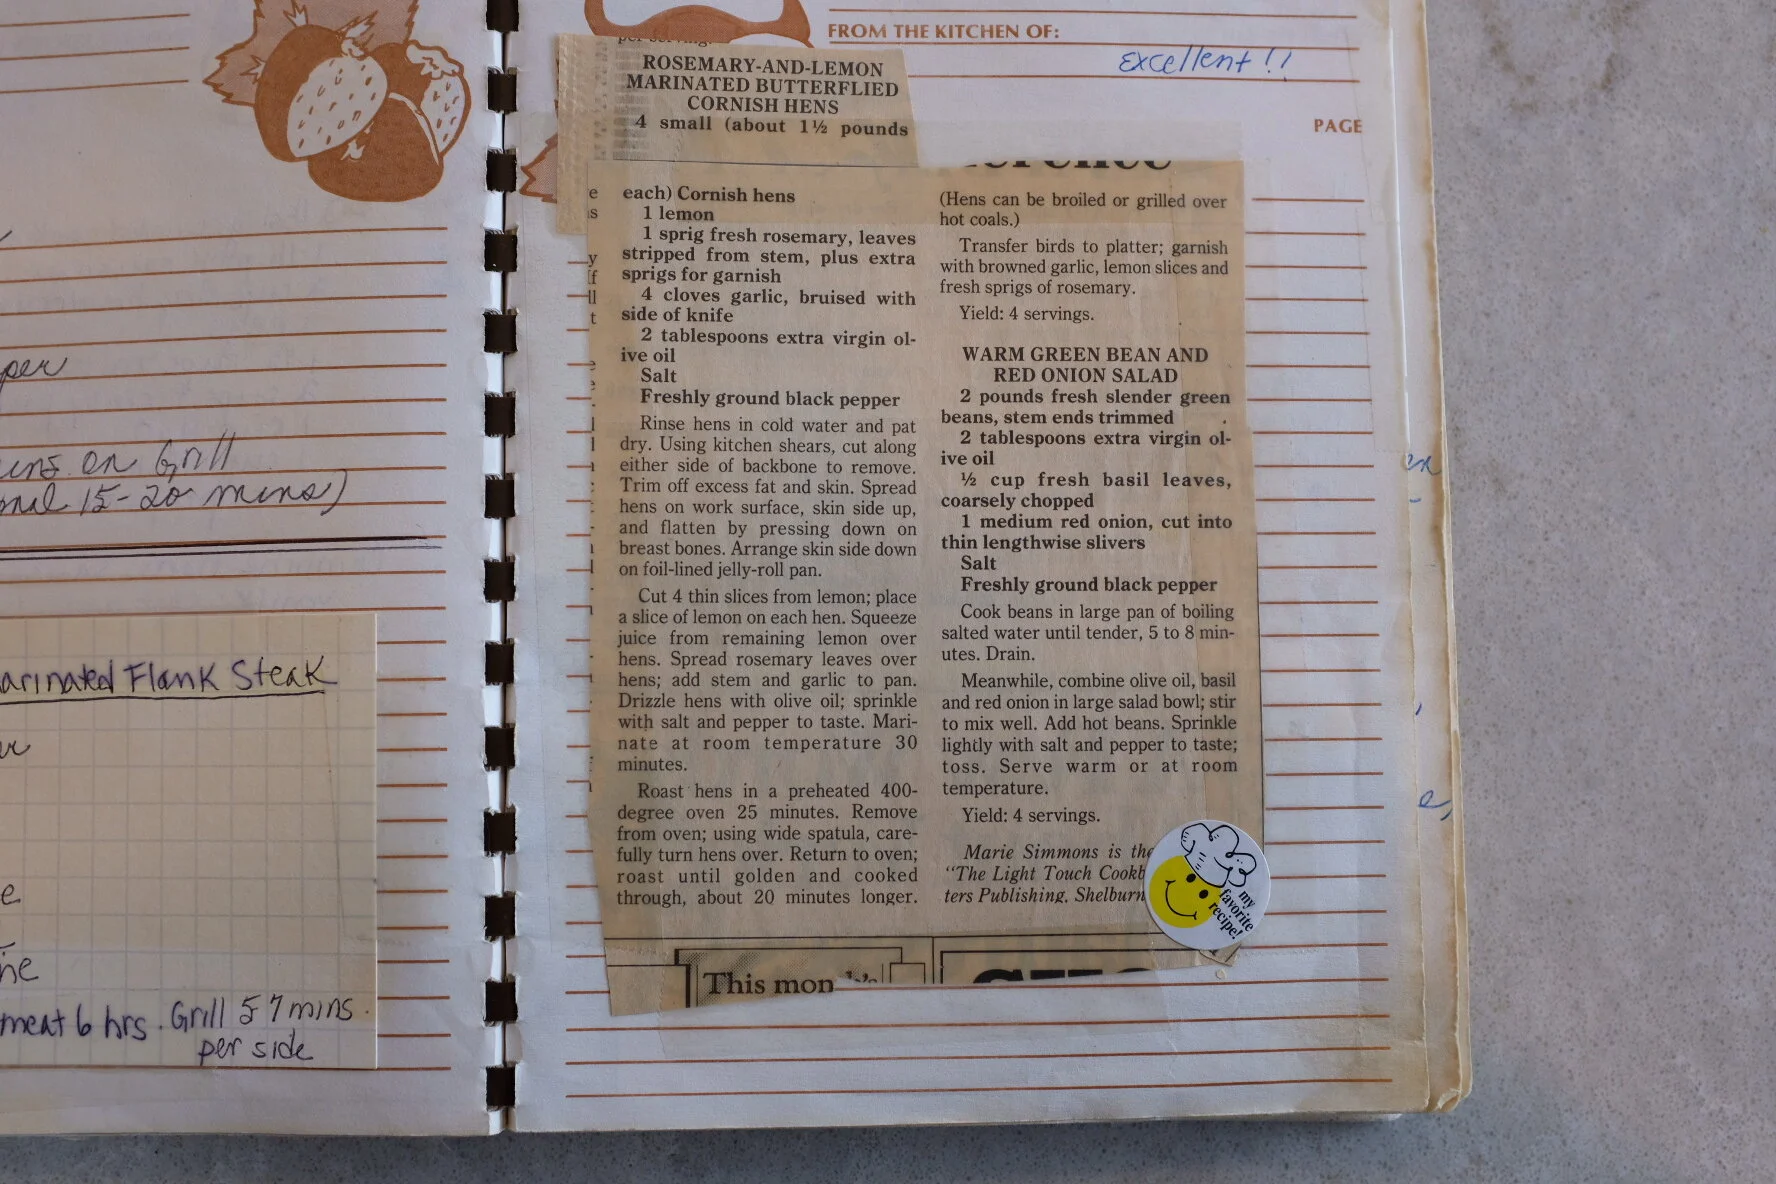 per
on Grill
15-20 mins)
arinated Flank Steak
meat 6 hrs. Grill 5-7 mins.
per side
FROM THE KITCHEN OF:
Excellent!!
PAGE
per serving.
ROSEMARY-AND-LEMON
MARINATED BUTTERFLIED
CORNISH HENS
4 small (about 1½ pounds
each) Cornish hens
1 lemon
1 sprig fresh rosemary, leaves
stripped from stem, plus extra
sprigs for garnish
4 cloves garlic, bruised with
side of knife
2 tablespoons extra virgin ol-
ive oil
Salt
Freshly ground black pepper
Rinse hens in cold water and pat
dry. Using kitchen shears, cut along
either side of backbone to remove.
Trim off excess fat and skin. Spread
hens on work surface, skin side up,
and flatten by pressing down on
breast bones. Arrange skin side down
on foil-lined jelly-roll pan.
Cut 4 thin slices from lemon; place
a slice of lemon on each hen. Squeeze
juice from remaining lemon over
hens. Spread rosemary leaves over
hens; add stem and garlic to pan.
Drizzle hens with olive oil; sprinkle
with salt and pepper to taste. Mari-
nate at room temperature 30
minutes.
Roast hens in a preheated 400-
degree oven 25 minutes. Remove
from oven; using wide spatula, care-
fully turn hens over. Return to oven;
roast until golden and cooked
through, about 20 minutes longer.
(Hens can be broiled or grilled over
hot coals.)
Transfer birds to platter; garnish
with browned garlic, lemon slices and
fresh sprigs of rosemary.
Yield: 4 servings.
WARM GREEN BEAN AND
RED ONION SALAD
2 pounds fresh slender green
beans, stem ends trimmed
2 tablespoons extra virgin ol-
ive oil
½ cup fresh basil leaves,
coarsely chopped
1 medium red onion, cut into
thin lengthwise slivers
Salt
Freshly ground black pepper
Cook beans in large pan of boiling
salted water until tender, 5 to 8 min-
utes. Drain.
Meanwhile, combine olive oil, basil
and red onion in large salad bowl; stir
to mix well. Add hot beans. Sprinkle
lightly with salt and pepper to taste;
toss. Serve warm or at room
temperature.
Yield: 4 servings.
Marie Simmons is the
"The Light Touch Cookb
ters Publishing, Shelburn
my
favorite
recipe!
This mon